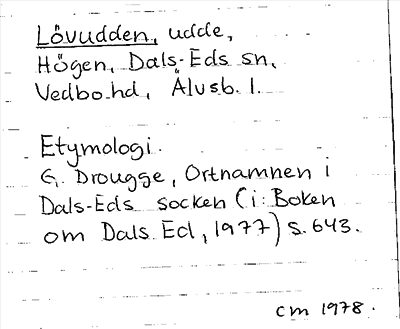 Lövudden, udde,
Högen, Dals-Eds sn,
Vedbo hd, Älvsb. l.
Etymologi.
G. Drougge, Ortnamnen i
Dals-Eds socken (i: Boken
om Dals Ed, 1977) s. 643.
cm 1978.